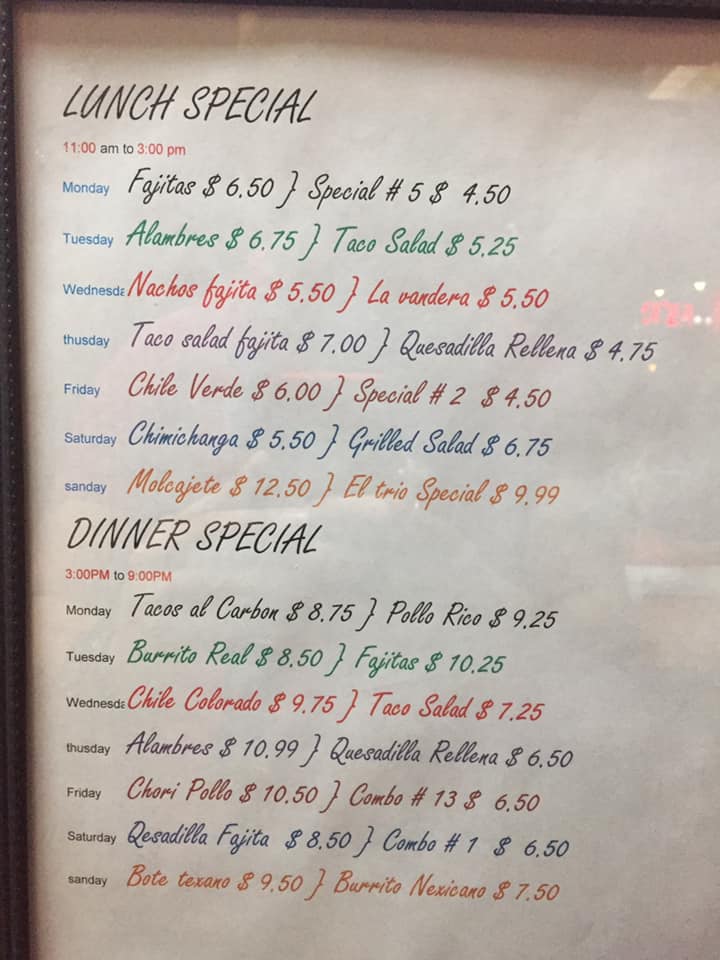 LUNCH SPECIAL
11:00 am to 3:00 pm
Monday Fajitas $ 6.50 } Special # 5 $ 4.50
Tuesday Alambres $ 6.75 } Taco Salad $ 5.25
Wednesda Nachos fajita $ 5.50 } La vandera $ 5.50
thusday Taco salad fajita $ 7.00 } Quesadilla Rellena $ 4.75
Friday Chile Verde $ 6.00 } Special # 2 $ 4.50
Saturday Chimichanga $ 5.50 } Grilled Salad $ 6.75
sanday Molcajete $ 12.50 } El trio Special $ 9.99
DINNER SPECIAL
3:00PM to 9:00PM
Monday Tacos al Carbon $ 8.75 } Pollo Rico $ 9.25
Tuesday Burrito Real $ 8.50 } Fajitas $ 10.25
Wednesda Chile Colorado $ 9.75 } Taco Salad $ 7.25
thusday Alambres $ 10.99 } Quesadilla Rellena $ 6.50
Friday Chori Pollo $ 10.50 } Combo # 13 $ 6.50
Saturday Qesadilla Fajita $ 8.50 } Combo # 1 $ 6.50
sanday Bote texano $ 9.50 } Burrito Nexicano $ 7.50